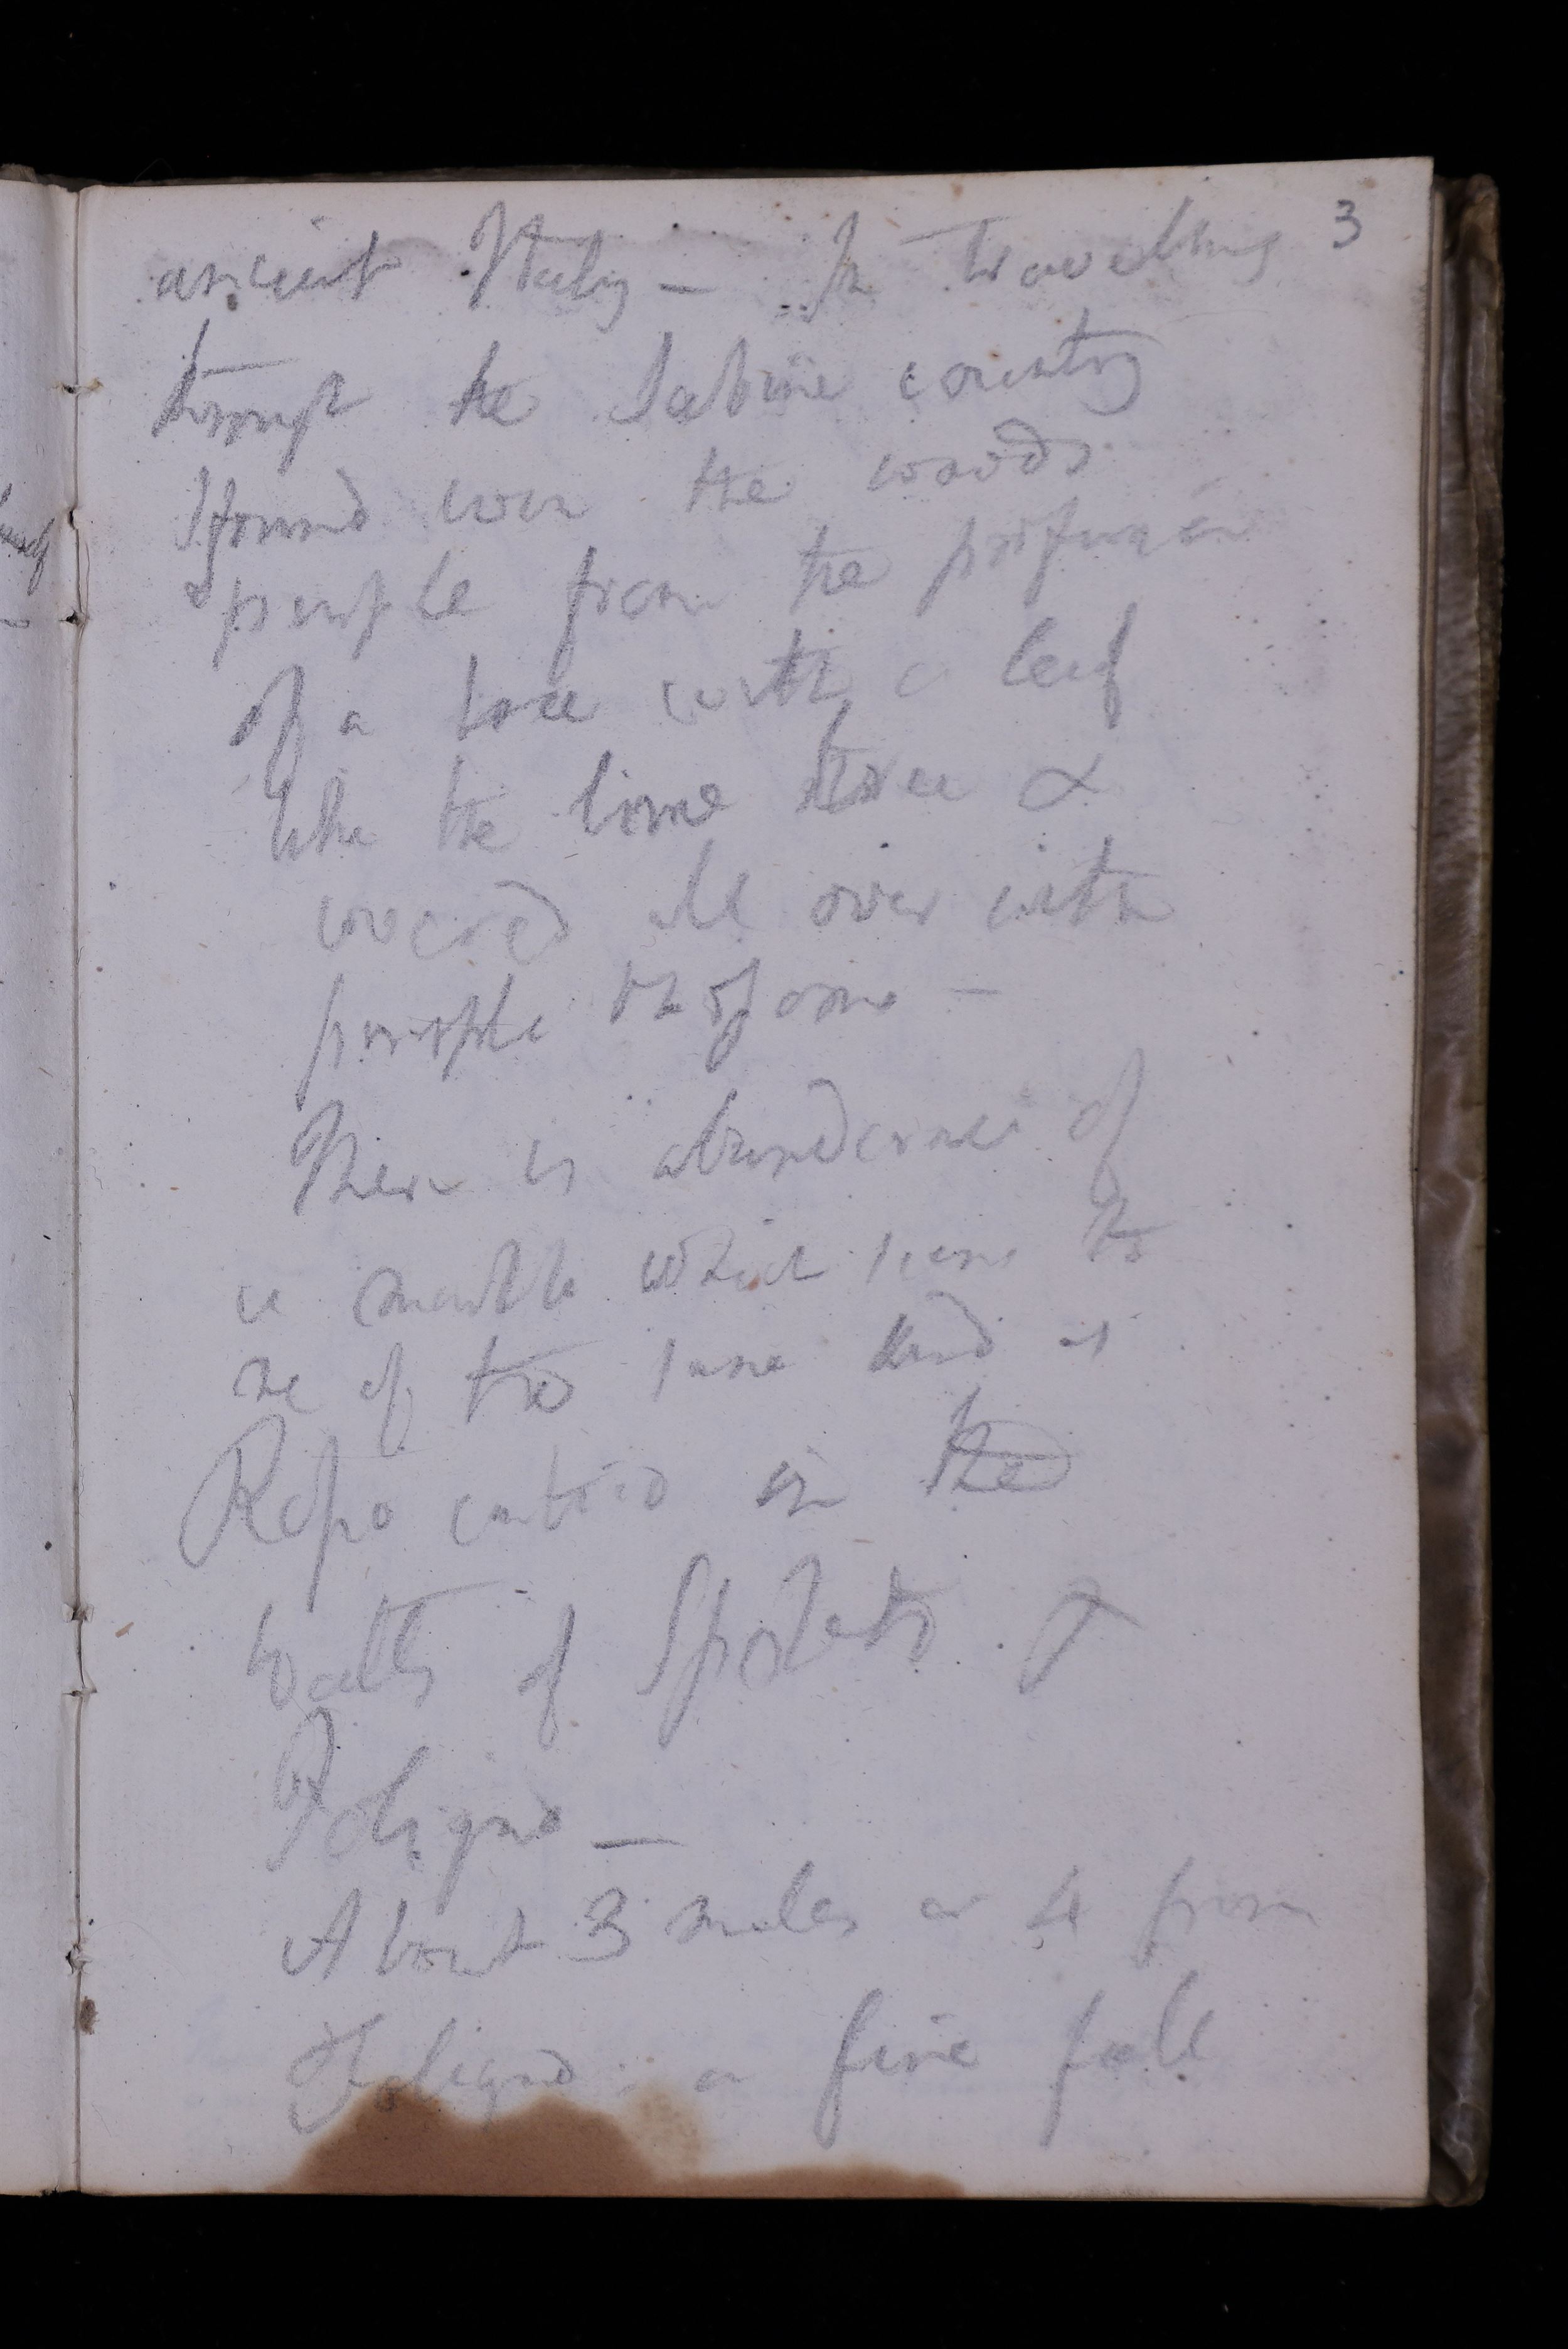 3
ancient Italy - In travelling
through the Sabine country
I found even the woods
purple from the profusion
of a tree with a leaf
like the lime tree &
covered all over with
purple blossoms -
There is abundance of
a marble which seems to
me of the same kind as
in the
walls of Spoleto &
Foligno -
About 3 miles or 4 from
Foligno a fine fall